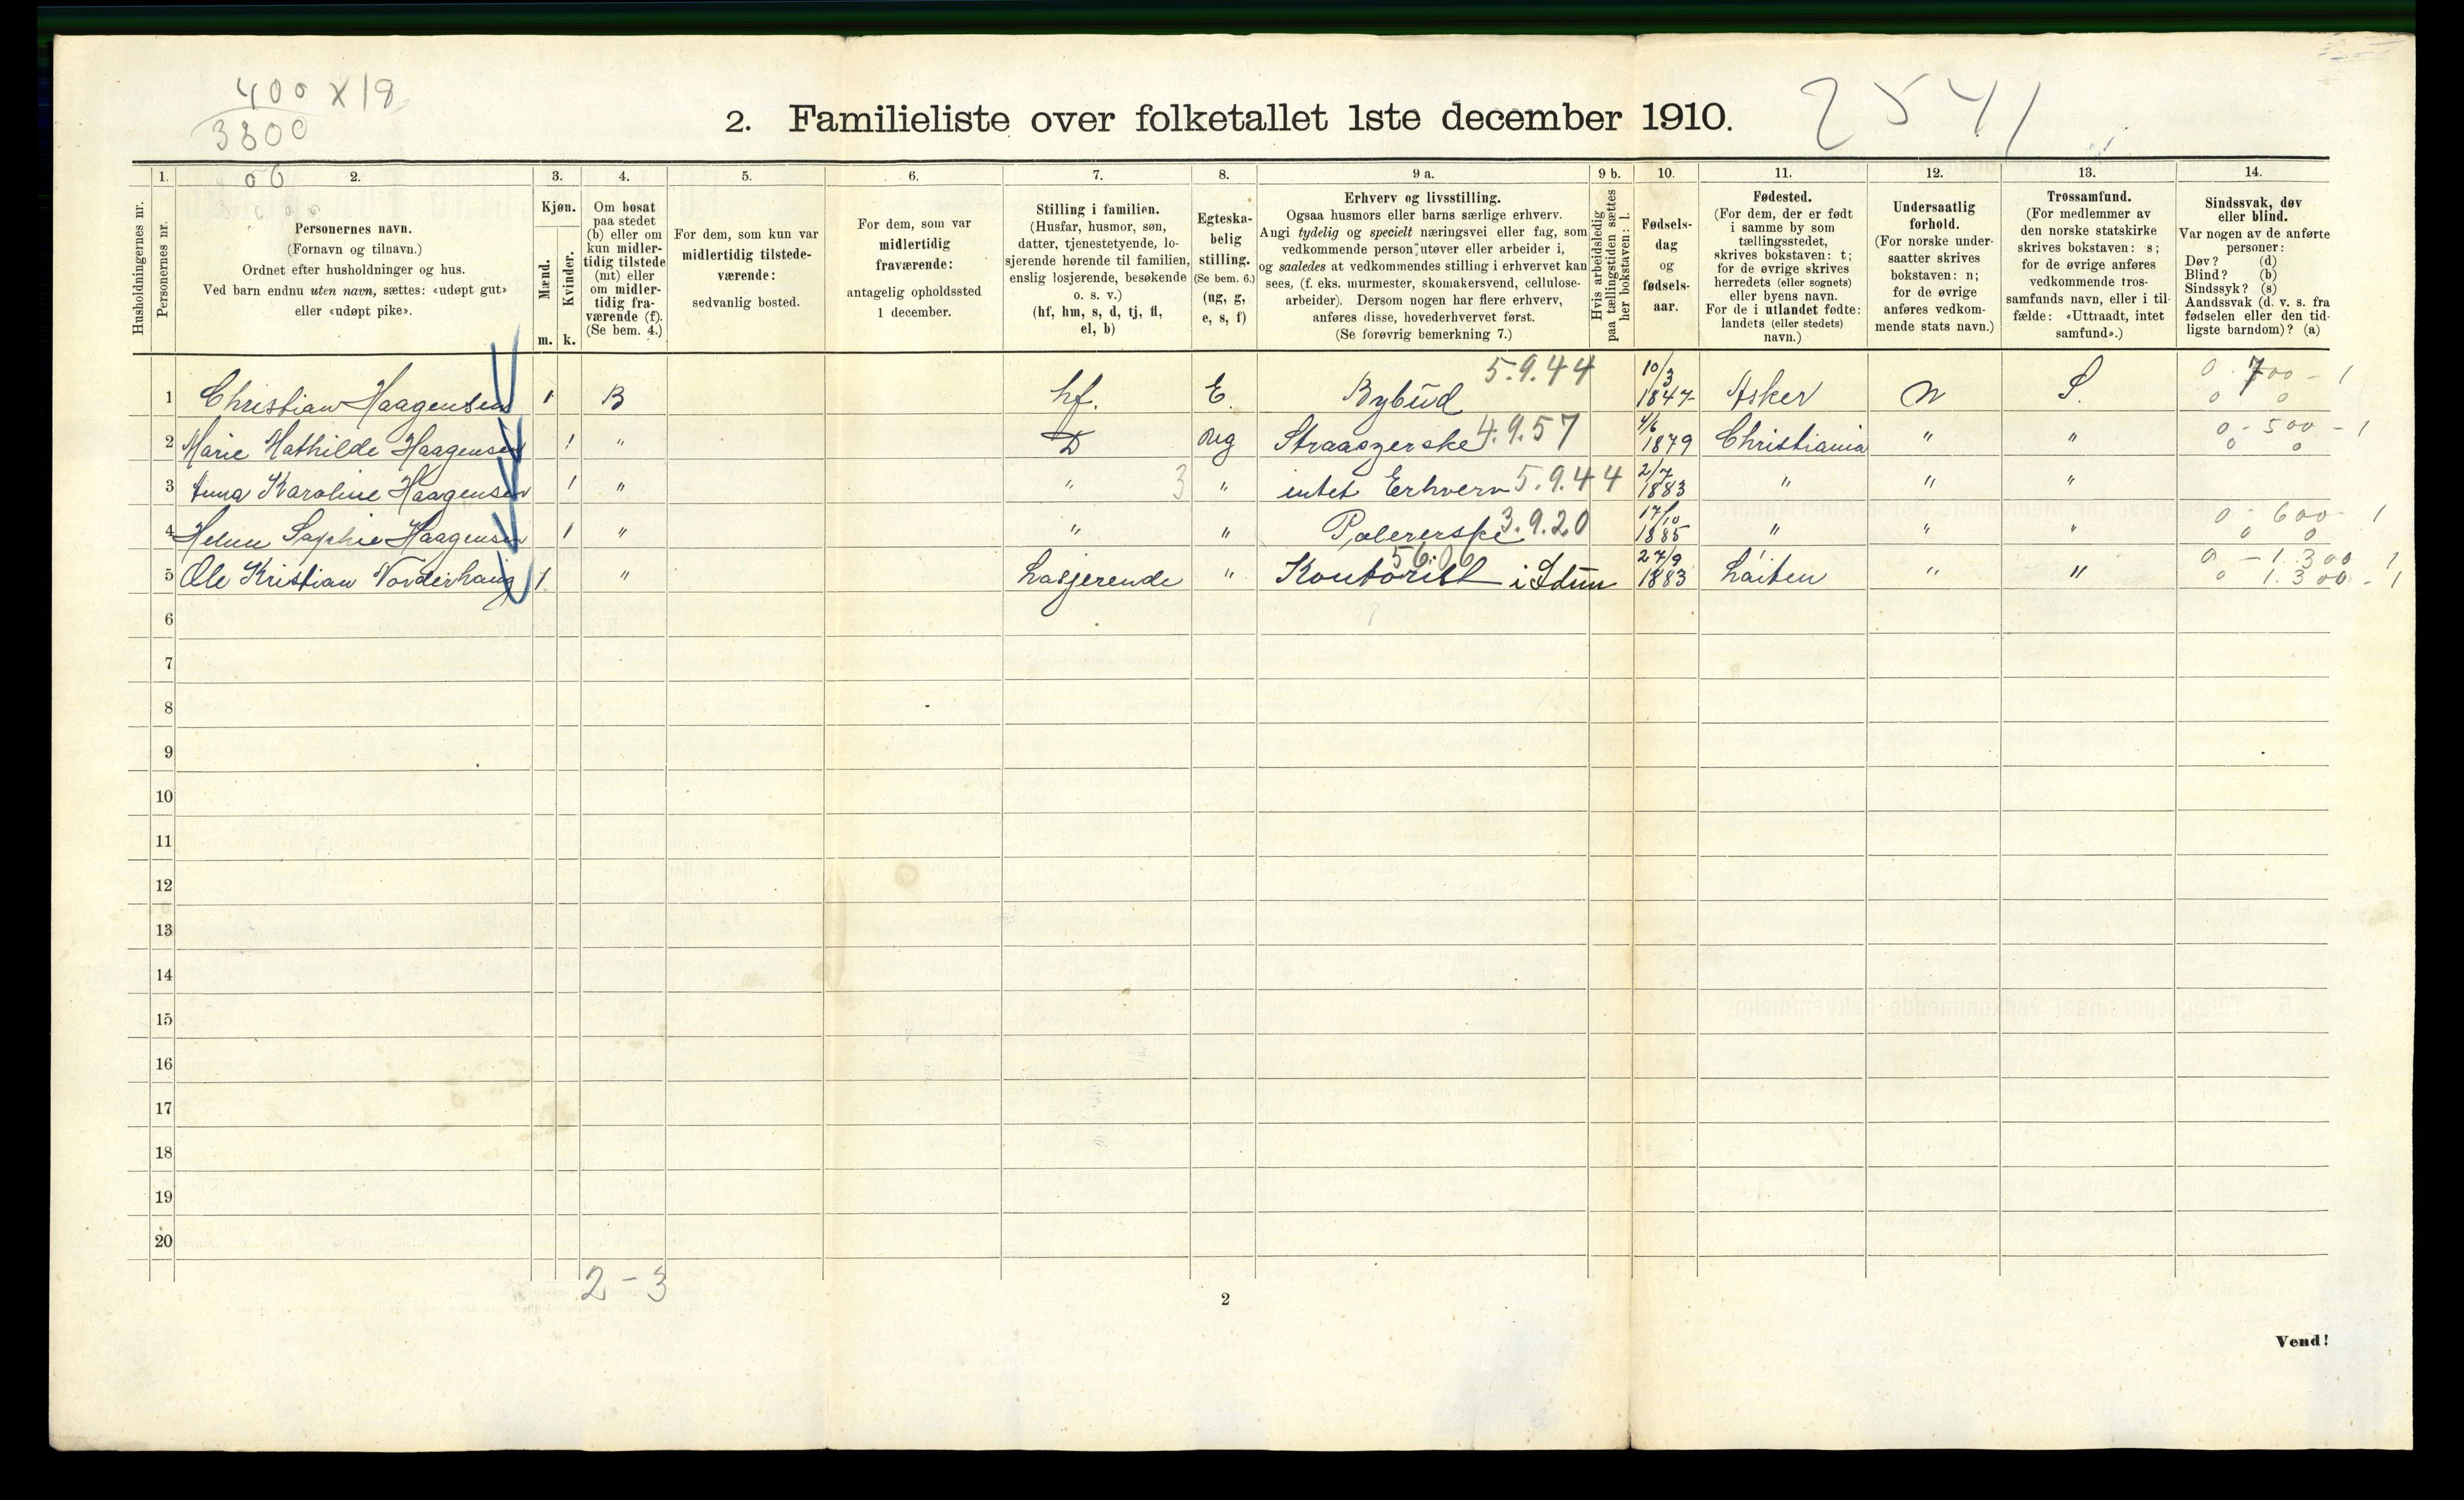 400 x 18
3800
2541
2. Familieliste over folketallet 1ste december 1910.
1. 2. 3. 4. 5. 6. 7. 8. 9 a. 9 b. 10. 11. 12. 13. 14.
Husholdningernes nr.
Personernes nr.
Personernes navn.
(Fornavn og tilnavn.)
Ordnet efter husholdninger og hus.
Ved barn endnu uten navn, sættes: «udøpt gut»
eller «udøpt pike».
Kjøn.
Mænd.
Kvinder.
m. k.
Om bosat
paa stedet
(b) eller om
kun midler-
tidig tilstede
(mt) eller
om midler-
tidig fra-
værende (f).
(Se bem. 4.)
For dem, som kun var
midlertidig tilstede-
værende:
sedvanlig bosted.
For dem, som var
midlertidig
fraværende:
antagelig opholdssted
1 december.
Stilling i familien.
(Husfar, husmor, søn,
datter, tjenestetyende, lo-
sjerende hørende til familien,
enslig losjerende, besøkende
o. s. v.)
(hf, hm, s, d, tj, fl,
el, b)
Egteska-
belig
stilling.
(Se bem. 6.)
(ug, g,
e, s, f)
Erhverv og livsstilling.
Ogsaa husmors eller barns særlige erhverv.
Angi tydelig og specielt næringsvei eller fag, som
vedkommende person utøver eller arbeider i,
og saaledes at vedkommendes stilling i erhvervet kan
sees, (f. eks. murmester, skomakersvend, cellulose-
arbeider). Dersom nogen har flere erhverv,
anføres disse, hovederhvervet først.
(Se forøvrig bemerkning 7.)
Hvis arbeidsledig
paa tællingstiden sættes
her bokstaven: l.
Fødsels-
dag
og
fødsels-
aar.
Fødested.
(For dem, der er født
i samme by som
tællingsstedet,
skrives bokstaven: t;
for de øvrige skrives
herredets (eller sognets)
eller byens navn.
For de i utlandet fødte:
landets (eller stedets)
navn.)
Undersaatlig
forhold.
(For norske under-
saatter skrives
bokstaven: n;
for de øvrige
anføres vedkom-
mende stats navn.)
Trossamfund.
(For medlemmer av
den norske statskirke
skrives bokstaven: s;
for de øvrige anføres
vedkommende tros-
samfunds navn, eller i til-
fælde: «Uttraadt, intet
samfund».)
Sindssvak, døv
eller blind.
Var nogen av de anførte
personer:
Døv? (d)
Blind? (b)
Sindssyk? (s)
Aandssvak (d. v. s. fra
fødselen eller den tid-
ligste barndom)? (a)
1 Christian Haagensen 1 B hf. E. Bybud 5.9.44 10/3 1847 Asker N S. 0 - 700 - 1 0 0
2 Marie Mathilde Haagensen 1 " D Ug Straasyerske 4.9.57 4/6 1879 Christiania " " 0 - 500 - 1 0 0
3 Anna Karoline Haagensen 1 " " 3 " intet Erhverv 5.9.44 2/7 1883 " " "
4 Helene Sophie Haagensen 1 " " " Polererske 3.9.20 17/10 1885 " " " 0 - 600 - 1 0 0
5 Ole Kristian Vorderhaug 1 " Losjerende " Kontorist i Idun 56.06 27/9 1883 Løiten " " 0 - 1.300 1 0 1.300 - 1
6
7
8
9
10
11
12
13
14
15
16
17
18
19
20
2 - 3
2
Vend!